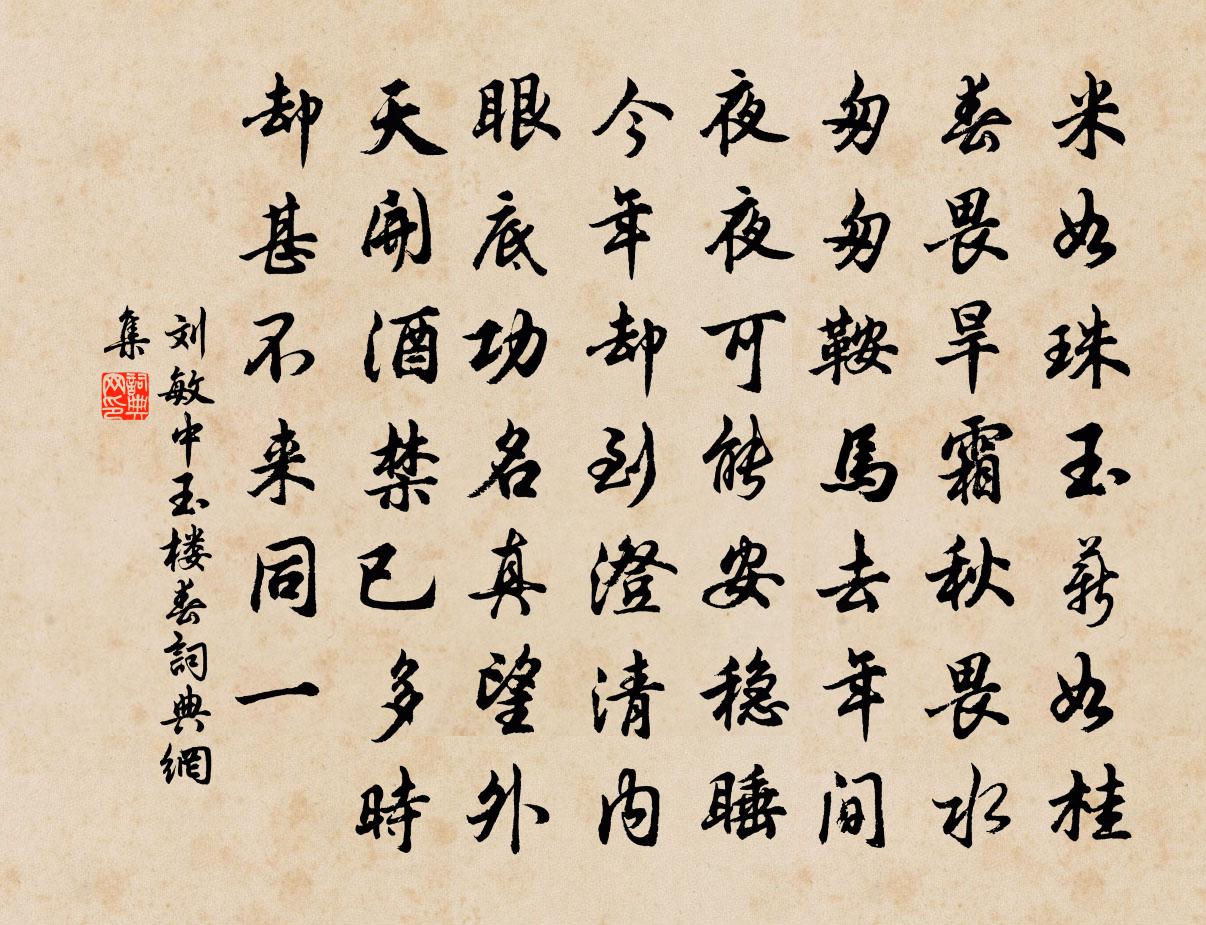 米如珠玉薪如桂
春畏旱霜秋畏水
匆匆鞍馬去年间
夜夜可能安稳睡
今年却到澄清内
眼底功名真望外
天開酒禁已多時
却甚不来同一
刘敏中玉楼春詞典網
集
詞典网印